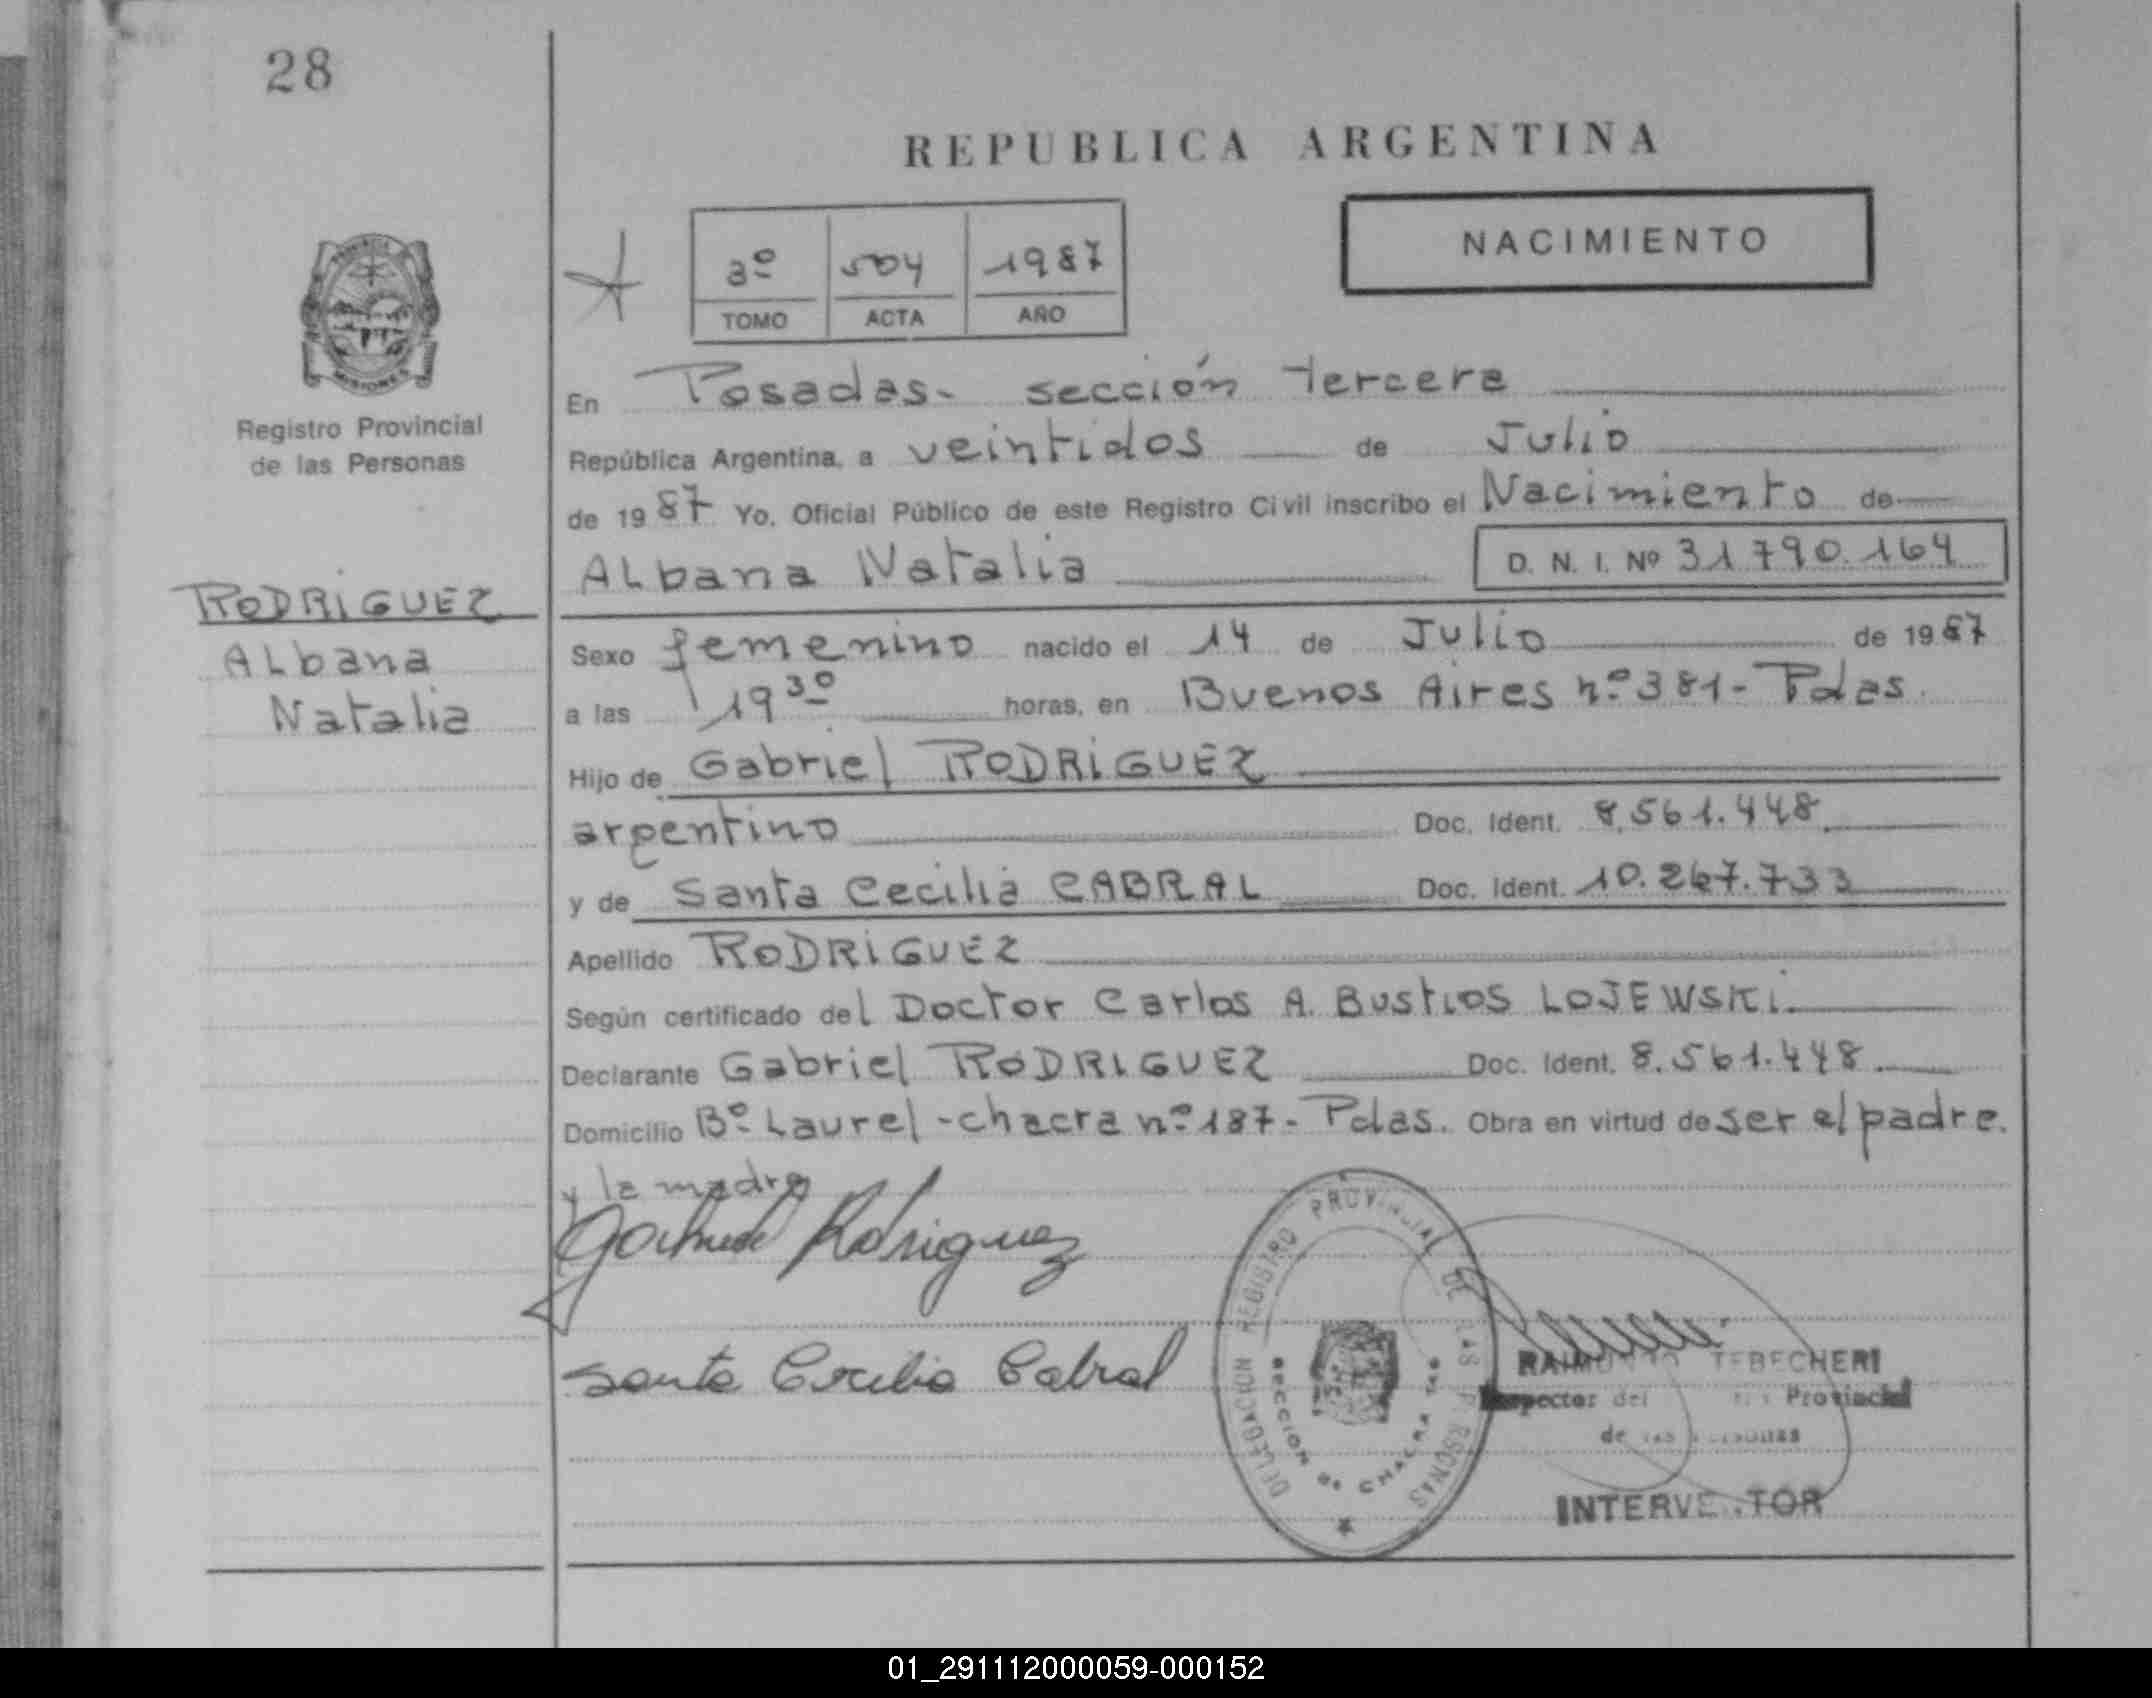 28
REPUBLICA ARGENTINA
NACIMIENTO
3º 504 1987
TOMO ACTA AÑO
MISIONES
Registro Provincial
de las Personas
En Posadas- sección tercera
República Argentina, a veintidos de Julio
de 1987 Yo, Oficial Público de este Registro Civil inscribo el Nacimiento de
Albana Natalia D. N. I. Nº 31790.164
RODRIGUEZ
Albana
Natalia
Sexo femenino nacido el 14 de Julio de 1987
a las 19 30 horas, en Buenos Aires nº 381- Pdas.
Hijo de Gabriel RODRIGUEZ
argentino Doc. Ident. 8.561.448.
y de Santa Cecilia CABRAL Doc. Ident. 10.267.733
Apellido RODRIGUEZ
Según certificado del Doctor Carlos A. Bustios LOJEWSKI.
Declarante Gabriel RODRIGUEZ Doc. Ident. 8.561.448.
Domicilio Bº Laurel - chacra nº 187- Pdas. Obra en virtud de ser el padre.
y la madre
Rodriguez
Santa Cecilia Cabral
DELEGACION REGISTRO PROVINCIAL DE LAS PERSONAS
SECCION 8a CHACRA
TEBECHERI
del Provincial
de las
INTERVENTOR
01_291112000059-000152